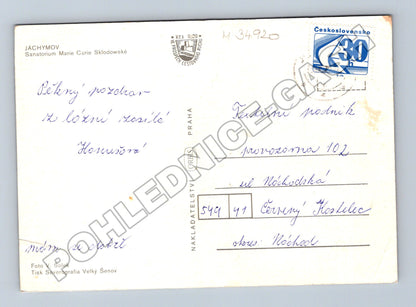 JÁCHYMOV
Sanatorium Marie Curie Sklodowské
M 34920
Československo
30
h
Pěkný pozdrav
z lázní zasílá
máme se dobře
Foto V.
Tisk Severografia Velký Šenov
NAKLADATELSTVÍ ORBIS, PRAHA
podnik
provozovna 102
ul Náchodská
549 41 Červený Kostelec
okres: Náchod
POHLEDNICE-GALERIE